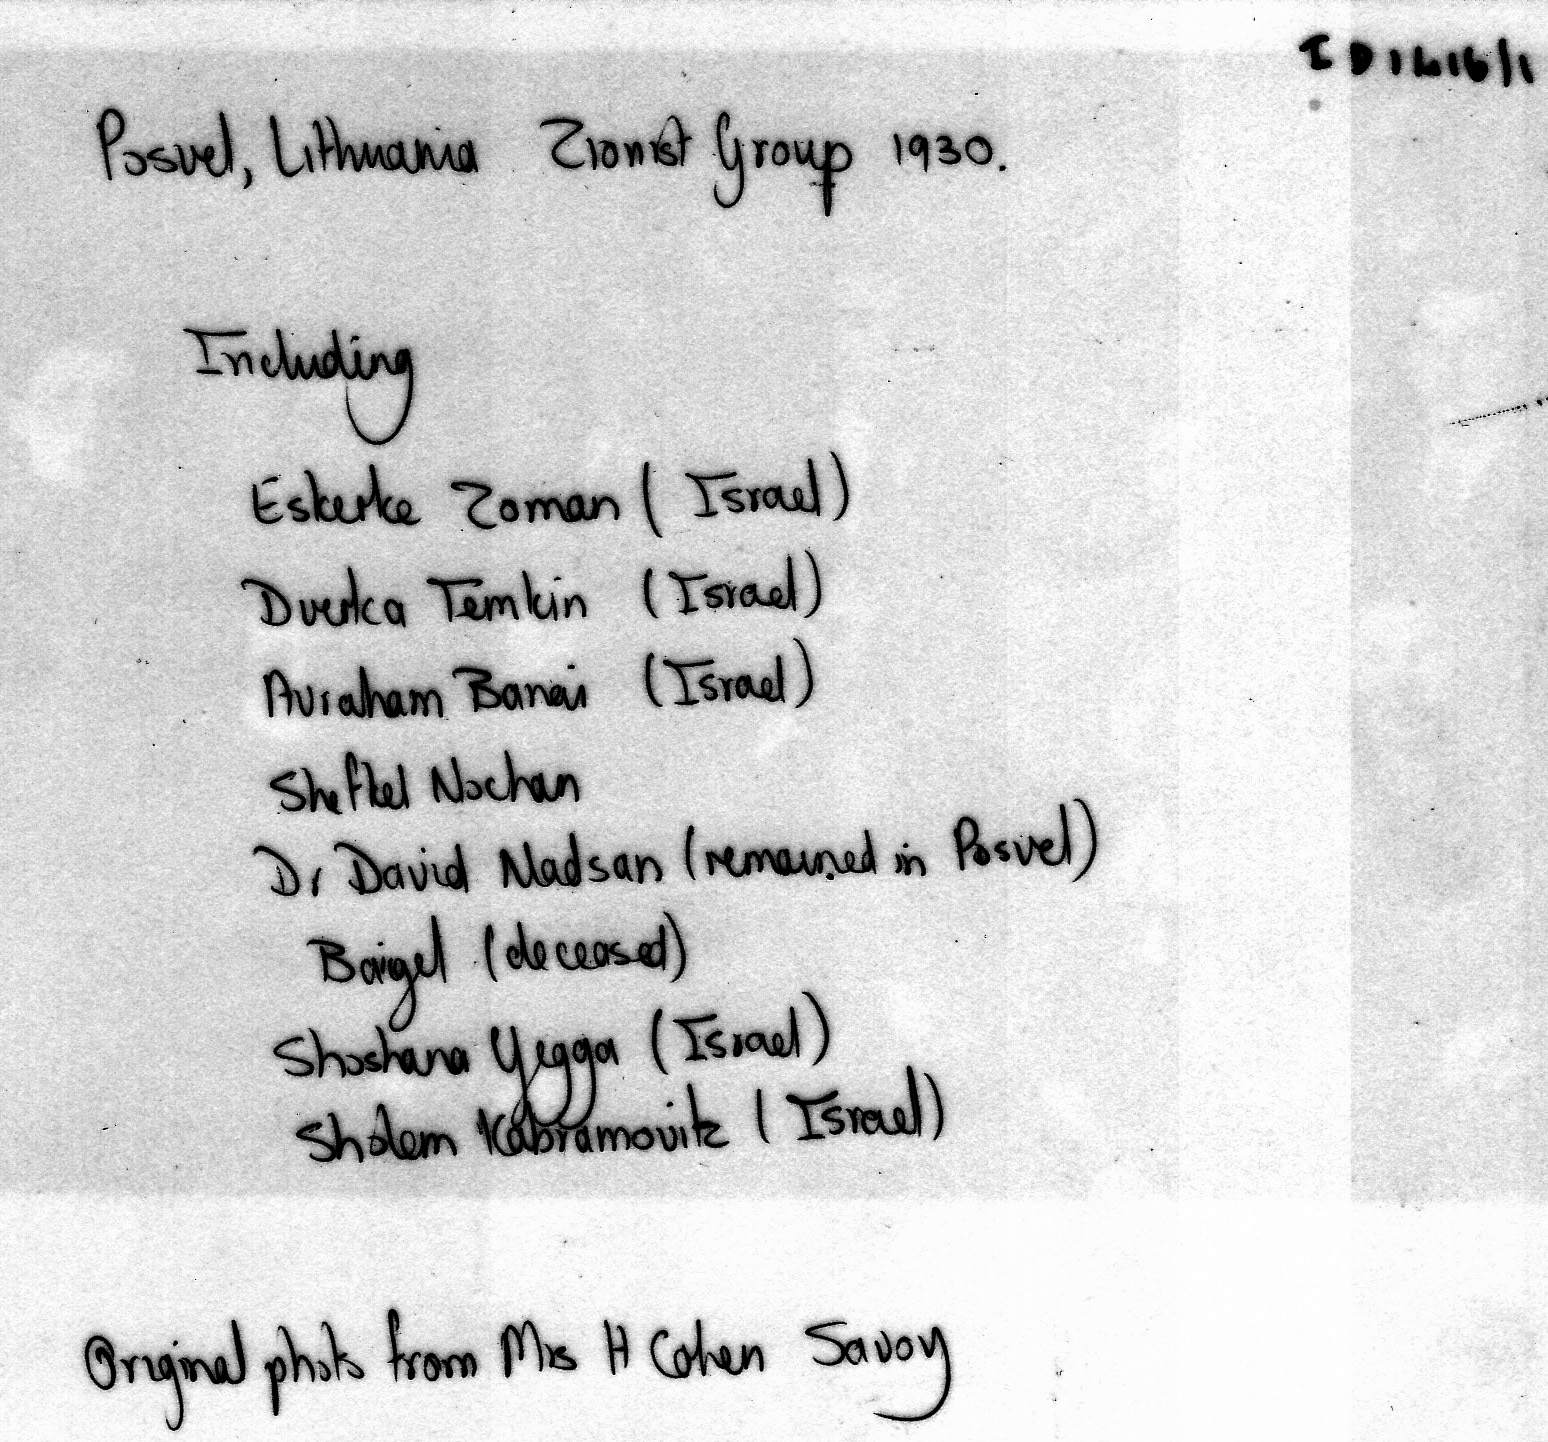 Posvel, Lithuania Zionist Group 1930.
Including
Eskerke Zoman ( Israel)
Dverka Temkin (Israel)
Avraham Banai (Israel)
Sheftel Nochan
Dr David Nadsan (remained in Posvel)
Baigel (deceased)
Shoshana Yegga (Israel)
Sholem Kabramovitz ( Israel)
Original photo from Mrs H Cohen Savoy